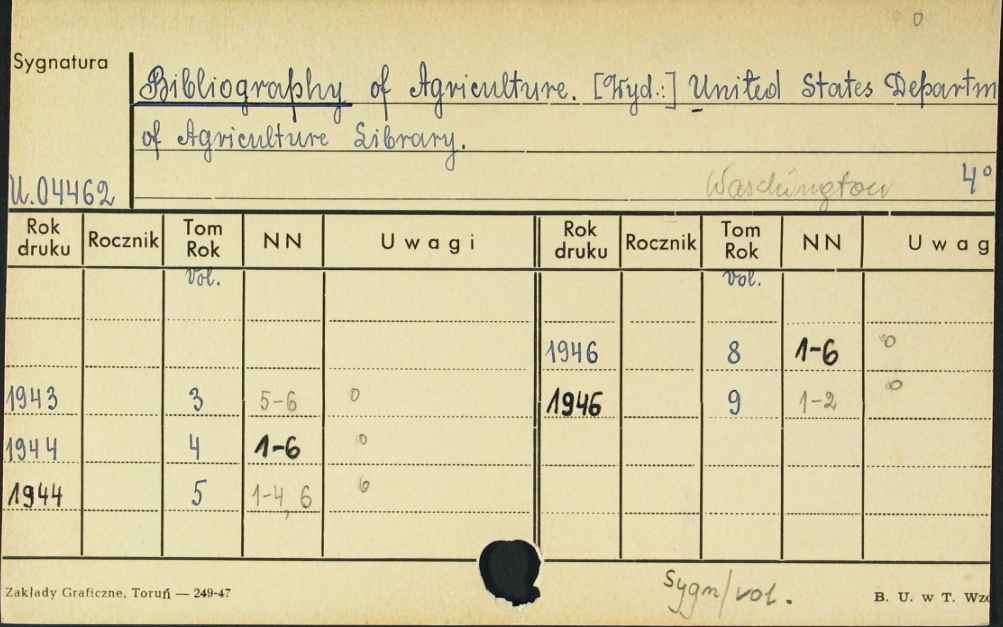 Sygnatura
Bibliography of Agriculture. [Wyd.:] United States Departm
of Agriculture Library.
U.04462 Waschington 4°
Rok druku Rocznik Tom Rok NN Uwagi Rok druku Rocznik Tom Rok NN Uwag
vol. vol.
1946 8 1-6 0
1943 3 5-6 0 1946 9 1-2 0
1944 4 1-6 0
1944 5 1-4, 6 0
Sygn/vol.
Zakłady Graficzne, Toruń — 249-47 B. U. w T. Wzó